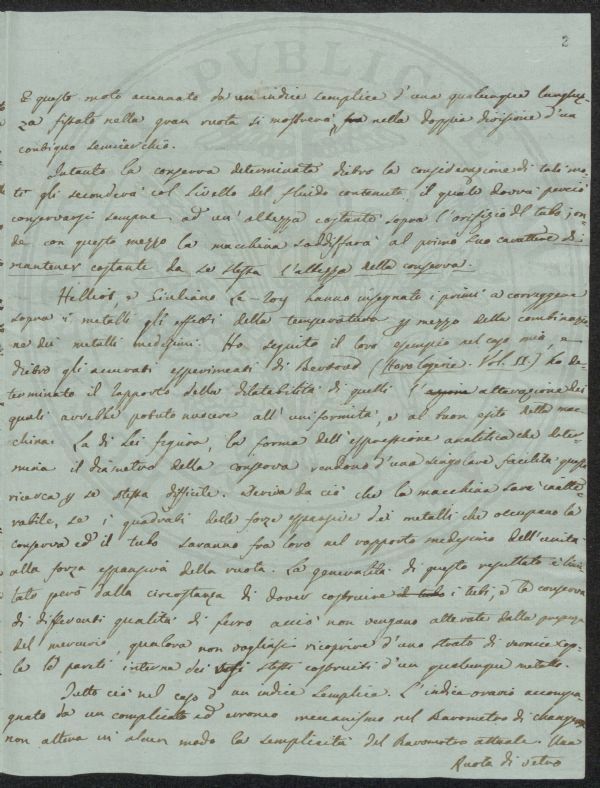 2
E questo moto accennato da un indice semplice d'una qualunque lunghez-
za fissato nella gran ruota si mostrerà nella doppia divisione d'un
contiguo semicerchio.
Intanto la conserva determinata dietro la considerazione di tali mo-
ti gli seconderà col livello del fluido contenuto, il quale dovrà perciò
conservarsi sempre ad un' altezza costante sopra l'orifizio del tubo; on-
de con questo mezzo la macchina saddisfarà al primo suo carattere di
mantener costante da se stessa l'altezza della conserva.
Helliot, e Giuliano Le-Roy hanno insegnato i primi a correggere
sopra i metalli gli effetti della temperatura per mezzo della combinazio-
ne dei metalli medesimi. Ho seguito il loro esempio nel caso mio, e
dietro gli accurati esperimenti di Berthoud (Horologerie Vol. II.) ho de-
terminato il rapporto della dilatabilità di quelli l' alterazione dei
quali avrebbe potuto nuocere all' uniformità, e al buon esito della mac-
china. La di lei figura, la forma dell'espressione analitica che deter-
mina il diametro della conserva rendono d'una singolare facilità questa
ricerca per se stessa difficile. Deriva da ciò che la macchina sarà inalte-
rabile, se i quadrati delle forze espansive dei metalli che occupano la
conserva ed il tubo saranno fra loro nel rapporto medesimo dell'unità
alla forza espansiva della ruota. La generalità di questo resultato è limi-
tata però dalla circostanza di dover costruire i tubi, e la conserva
di differenti qualità di ferro acciò non vengano alterate dalla presenza
del mercurio, qualora non vogliasi ricoprire d'uno strato di vernice co-
le pareti interne dei stessi costruiti d'un qualunque metallo.
Tutto ciò nel caso d'un indice semplice. L'indice orario accompa-
gnato da un complicato ed erroneo meccanismo nel Barometro di
non altera in alcun modo la semplicità del Barometro attuale. Una
Ruota di vetro
PVBLIC